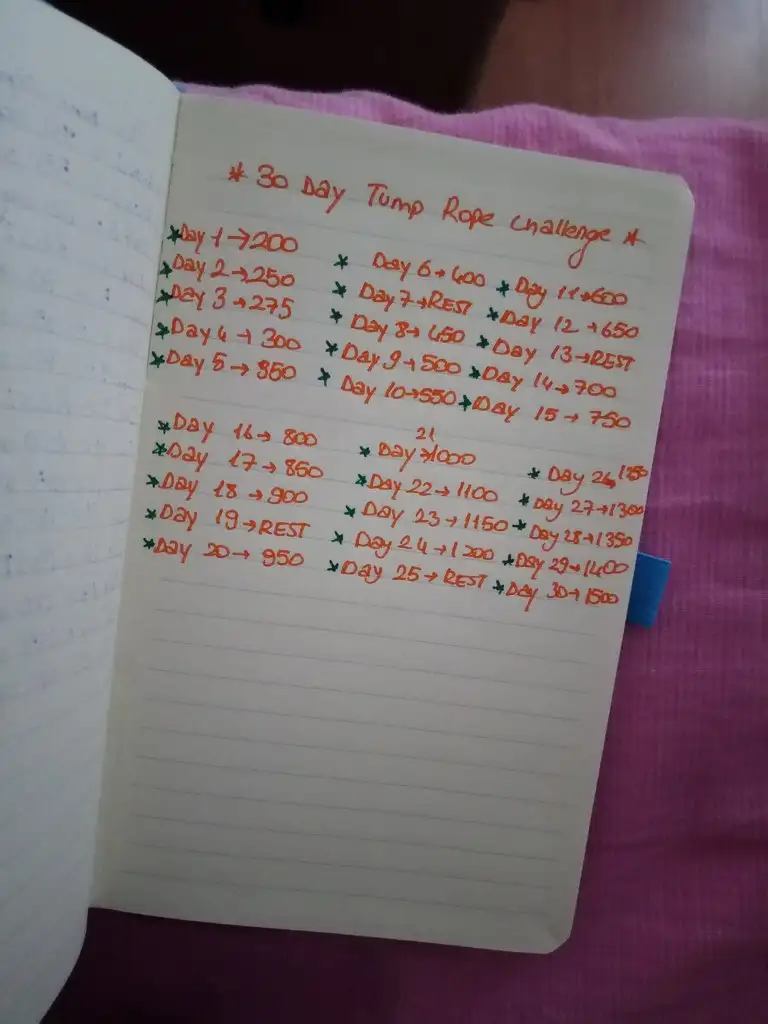 * 30 Day Jump Rope challenge *
* Day 1 → 200
* Day 2 → 250
* Day 3 → 275
* Day 4 → 300
* Day 5 → 350
* Day 6 → 400
* Day 7 → REST
* Day 8 → 450
* Day 9 → 500
* Day 10 → 550
* Day 11 → 600
* Day 12 → 650
* Day 13 → REST
* Day 14 → 700
* Day 15 → 750
* Day 16 → 800
* Day 17 → 850
* Day 18 → 900
* Day 19 → REST
* Day 20 → 950
* Day 21 → 1000
* Day 22 → 1100
* Day 23 → 1150
* Day 24 → 1200
* Day 25 → REST
* Day 26 → 1250
* Day 27 → 1300
* Day 28 → 1350
* Day 29 → 1400
* Day 30 → 1500